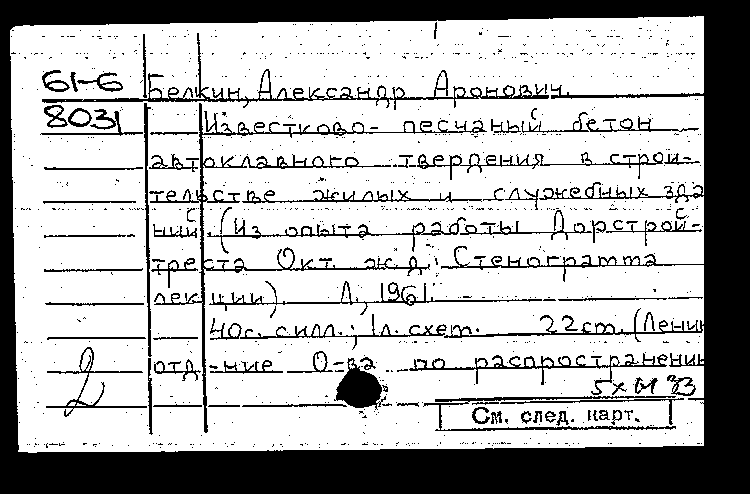 61-6 Белкин, Александр Аронович.
8031 Известково-песчаный бетон
автоклавного твердения в строи-
тельстве жилых и служебных зда
ний. (Из опыта работы Дорстрой-
треста Окт. ж.д. Стенограмма
лекции). Л., 1961.
40с. с илл.; 1 л. схет. 22 см. (Ленин
отд-ние О-ва по распространению
2
См. след. карт.